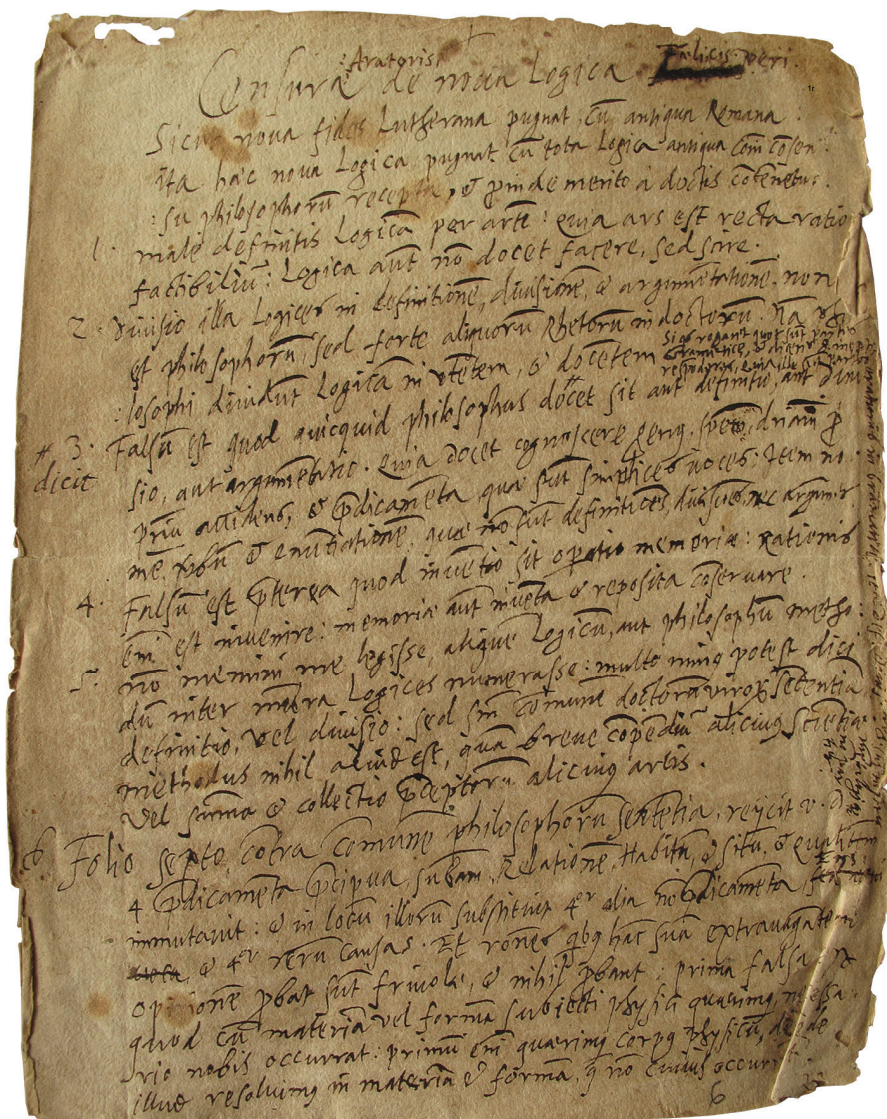 :Aratoris:
Censura de noua Logica Felicis peri.
Sicut noua fides Lutherana pugnat cū antiqua Romana:
ita hæc noua Logica pugnat cū tota Logica antiqua com̄ cōsen
:su philosophorū recepta, & proinde merito à doctis cōtēnetur.
1. male definitis Logicā per artē: quia ars est recta ratio
factibiliū: Logica aūt nō docet facere, sed scire.
2. diuisio illa Logices in definitionē, diuisionē, & argumētationē. non
est philosophorū, sed forte aliquorū Rhetorū indoctorū. Nā phi
:losophi diuidūt Logicā in vtētem, & docētem
# 3. Falsū est quod quicquid philosophus docet sit aut definitio, aut diui
dicit
sio, aut argumētatio. quia docet cognoscere
priū accidens, & p̄dicamēta quæ sūt simplices voces: Item no
mē, & enūtiationē, quæ nō sūt definitiões, diuisiões, nec argum.
4. Falsū est p̄terea quod inuētio sit opatio memoriæ: Rationis
em̄ est inuenire: memoriæ aūt inuēta & reposita cōseruare.
5. nō memini me legisse, aliquē Logicū, aut philosophū metho:
dū inter mēbra Logices numerasse: multo minꝰ potest dici
definitio, vel diuisio: sed sm̄ cōmunē doctorū viroꝝ sētentiā
methodus nihil aliud est, quā breue cōpēdiū alicuiꝰ sciētiæ
Vel sūma & collectio p̄ceptorū alicuiꝰ artis.
6. Folio septo, cōtra cōmunē philosophorū sentētiā, rejicit v. D.
4 p̄dicamēta p̄cipua, subāam, Relationē, Habitū, & sitū. & qualitem
immutauit: & in locū illorū substituit 4r alia nō p̄dicamēta
& 4r rerū causas. Et rōnes qbꝫ hāc suā extrauagātem
opinionē ꝓbat sūt friuolæ, & nihil ꝓbant: prima falsa
quod cū materiā vel formā subiecti physici quærimꝰ, necessa:
rio nobis occurrat: primū em̄ quærimꝰ corpꝰ physicū, deīde
illud resoluimꝰ in materiā & formā, q̄ nō cuiuis occurr
6